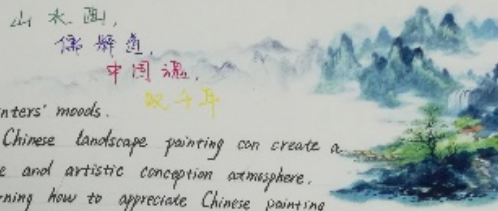 山水画,
儒释道,
中国魂,
叹千年
nters' moods.
Chinese landscape painting can create a
e and artistic conception atmosphere.
rning how to appreciate Chinese painting